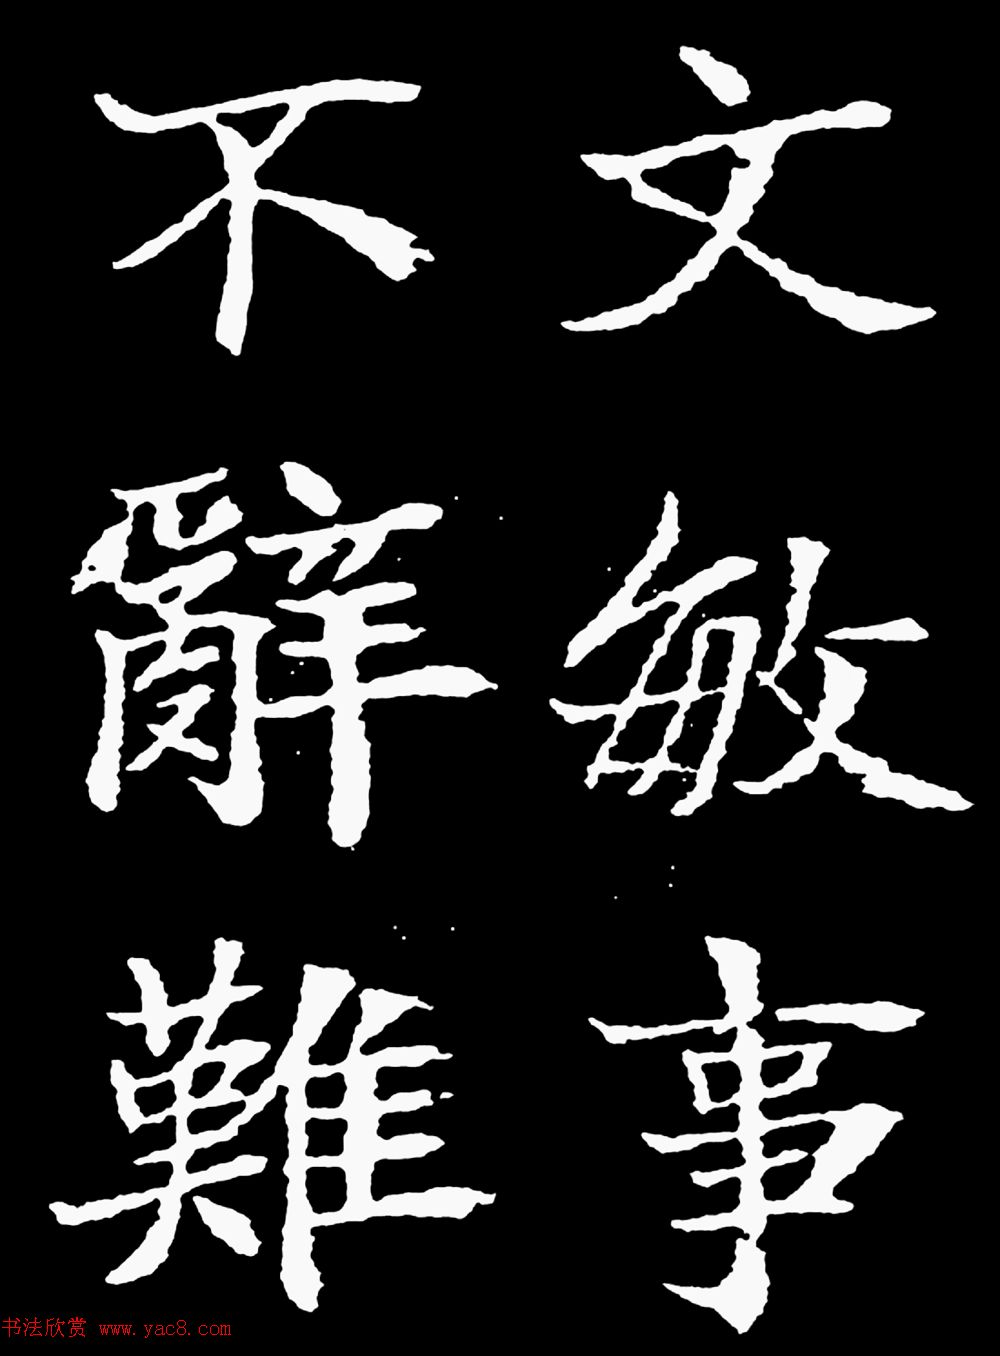 文敏事
不辭難
书法欣赏 www.yac8.com